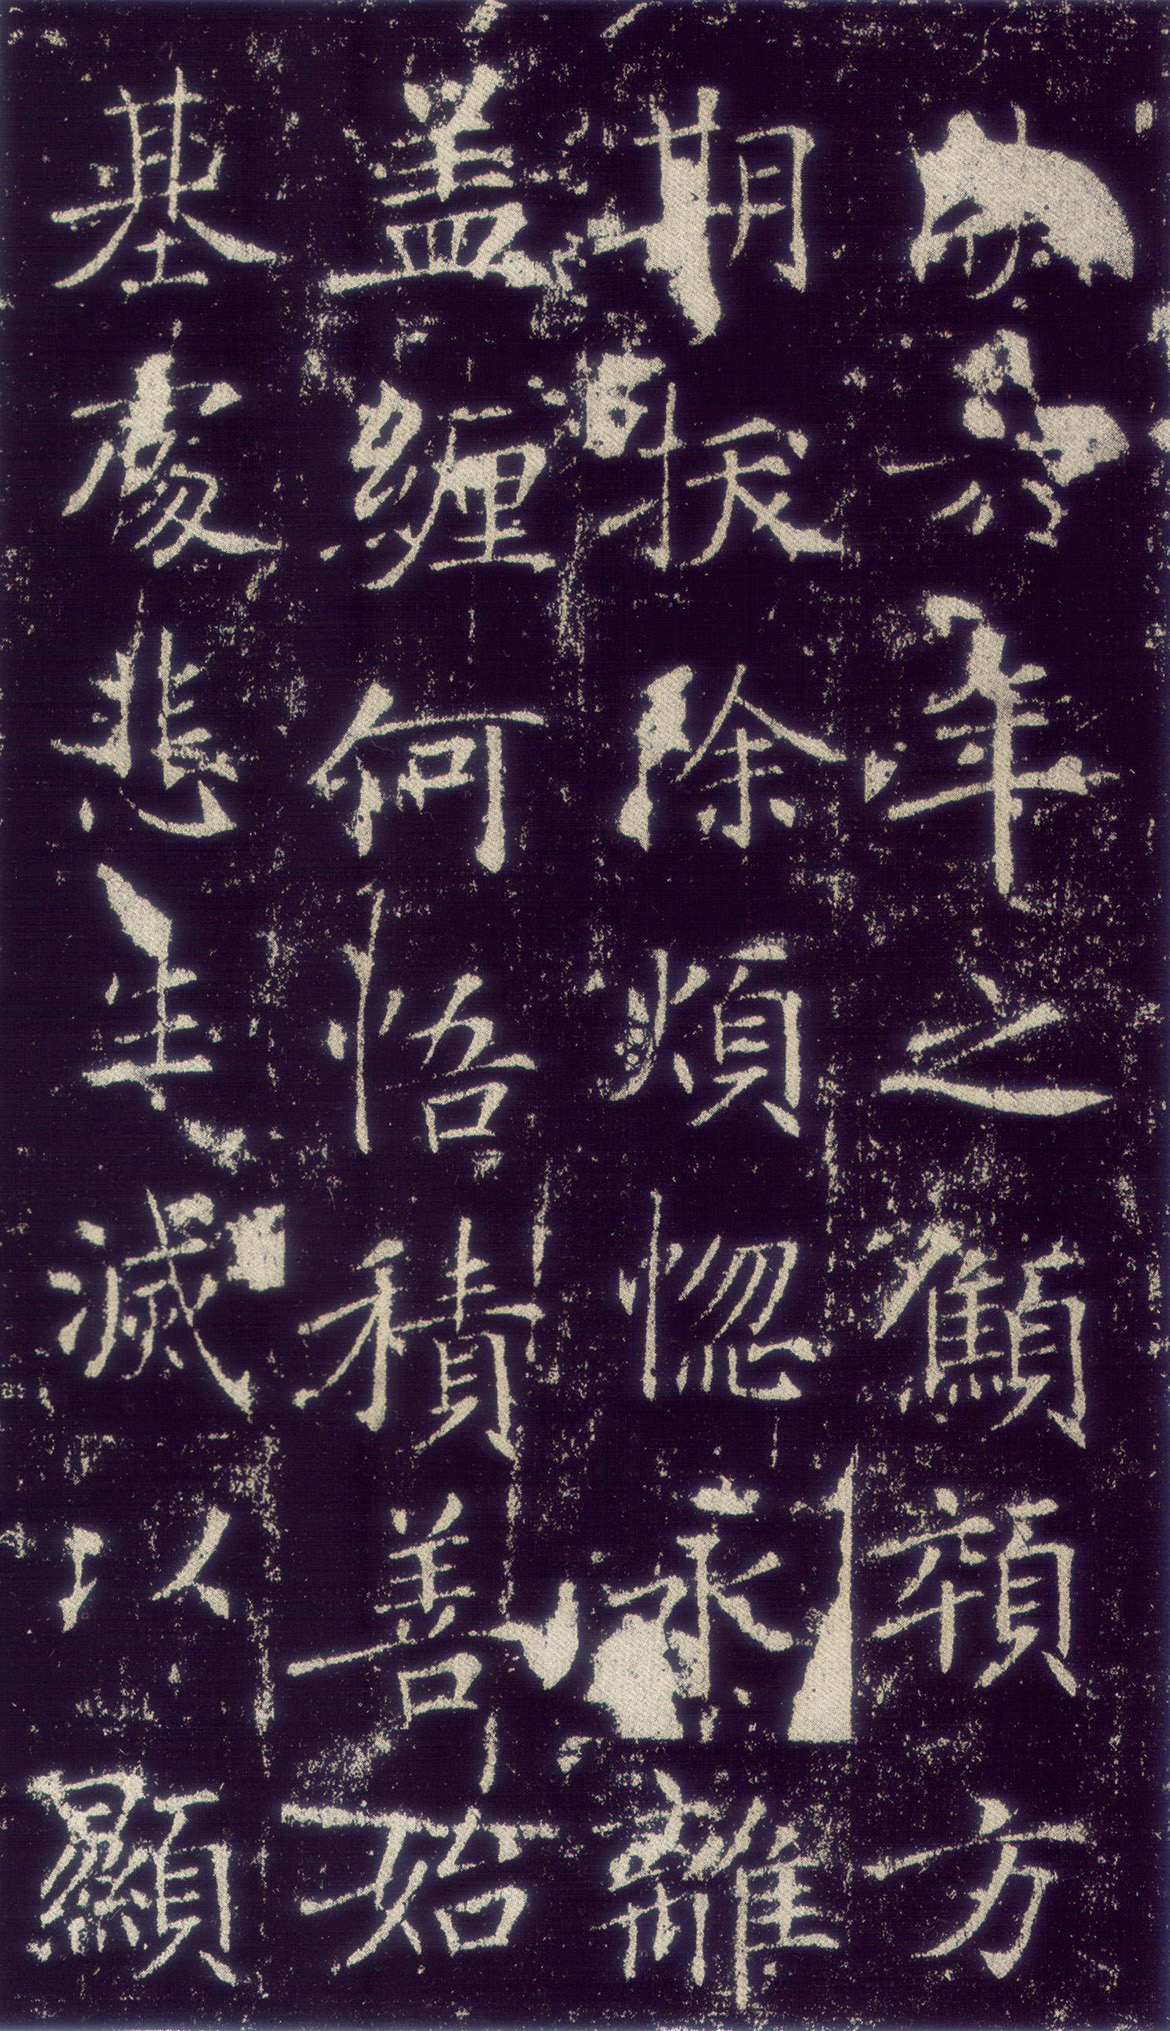 年之顦顇方
期拔除煩惚永離
盖纏何悟積善始
基處悲生滅以顯